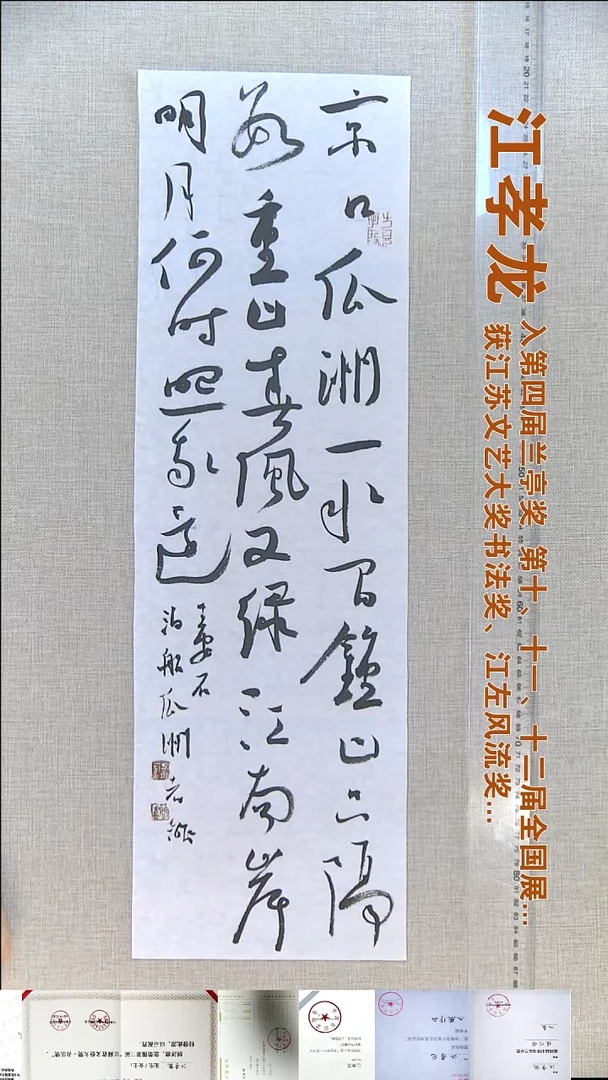 京口瓜洲一水間鐘山只隔
數重山春風又綠江南岸
明月何時照我還
王安石
泊船瓜洲 孝龍
江孝龙
入第四届兰亭奖 第十、十一、十二届全国展...
获江苏文艺大奖书法奖、江左风流奖...